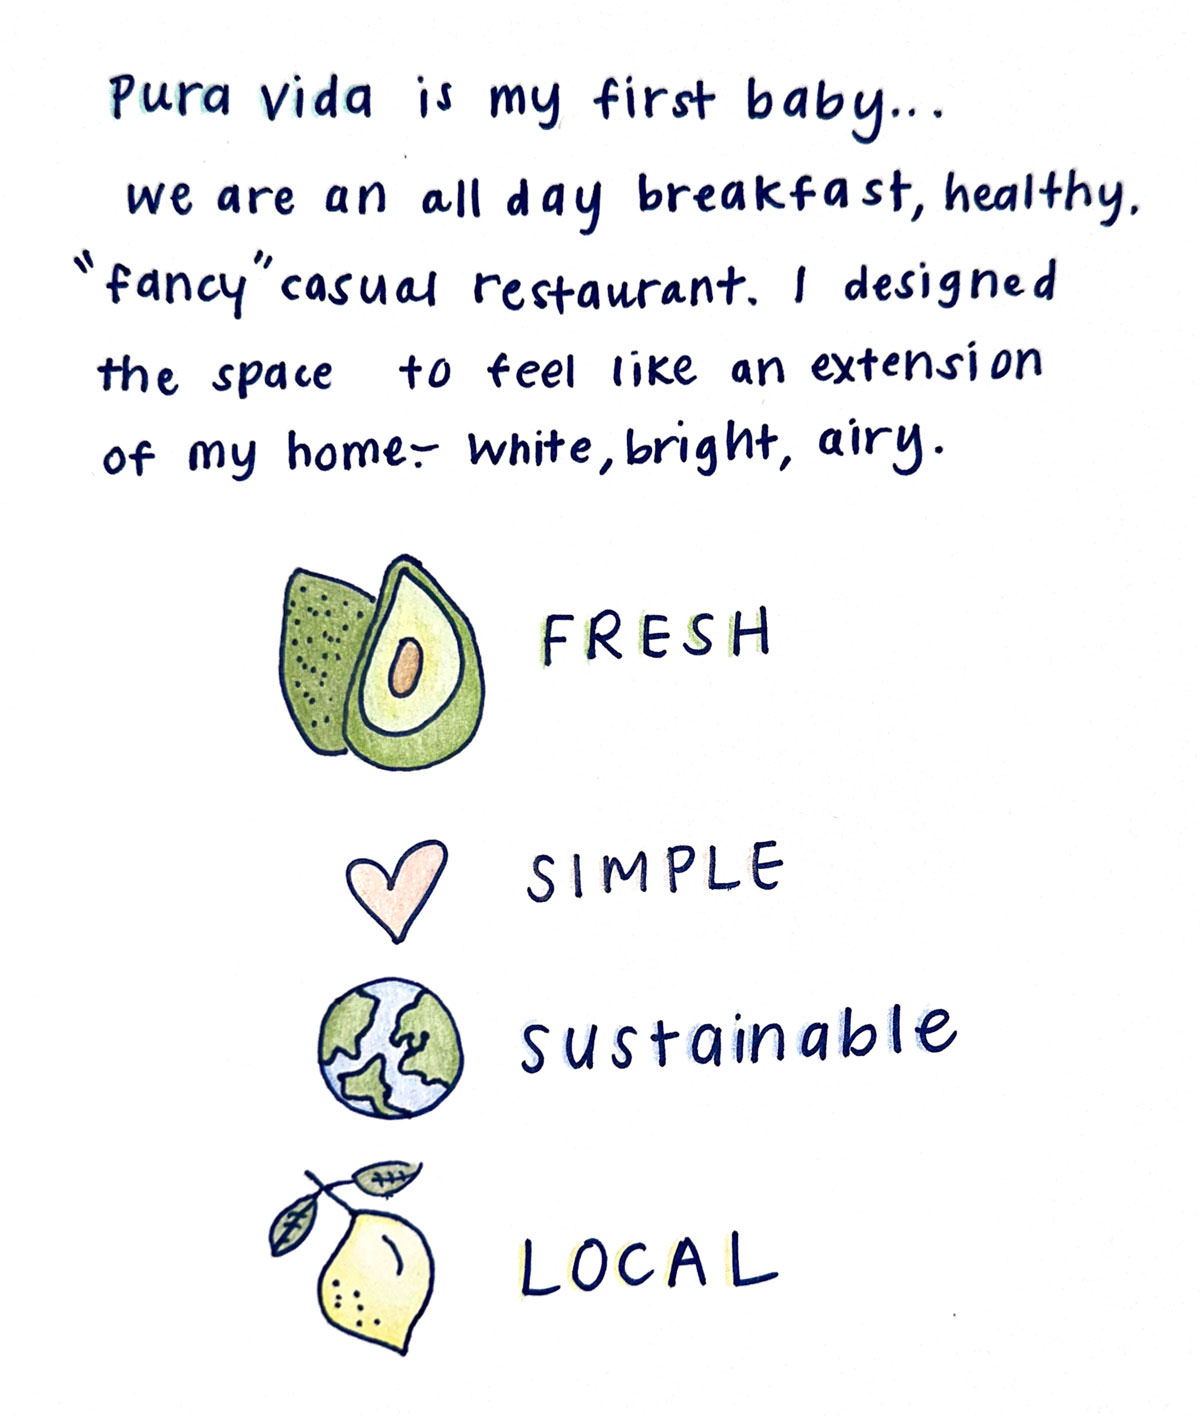 Pura vida is my first baby...
we are an all day breakfast, healthy.
"fancy" casual restaurant. I designed
the space to feel like an extension
of my home:- white, bright, airy.
FRESH
SIMPLE
sustainable
LOCAL